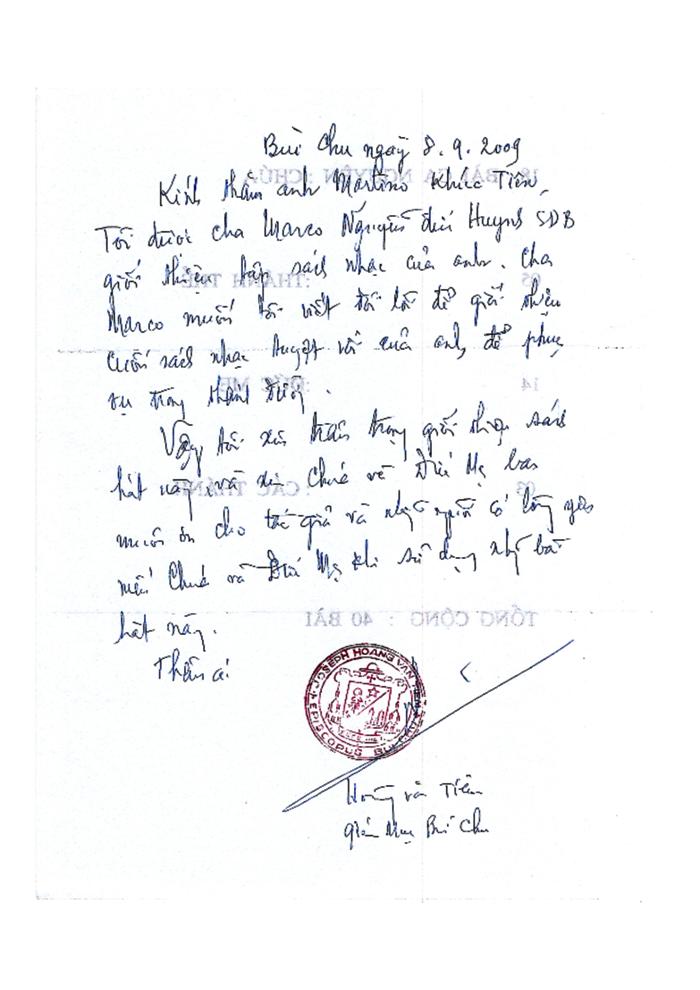 Bùi Chu ngày 8.9.2009
Kính thăm anh Martino Khúc Tiên,
Tôi được cha Marco Nguyễn đức Huỳnh SDB
giới thiệu tập sách nhạc của anh. Cha
Marco muốn tôi viết đôi lời để giới thiệu
cuốn sách nhạc tuyệt vời của anh, để phục
vụ trong thánh đường.
Vậy tôi xin trân trọng giới thiệu sách
hát này, và xin Chúa và Đức Mẹ ban
muôn ơn cho tác giả và những người có lòng yêu
mến Chúa và Đức Mẹ khi sử dụng những bài
hát này.
Thân ái
JOSEPH HOANG VAN TIEM
EPISCOPUS BUI CHU
Hoàng văn Tiêm
giám mục Bùi Chu
BÀI CA NGUYỆN : CHÚA
05 : THÁNH THỂ
14 : ĐỨC MẸ
03 : CÁC THÁNH
TỔNG CỘNG : 40 BÀI